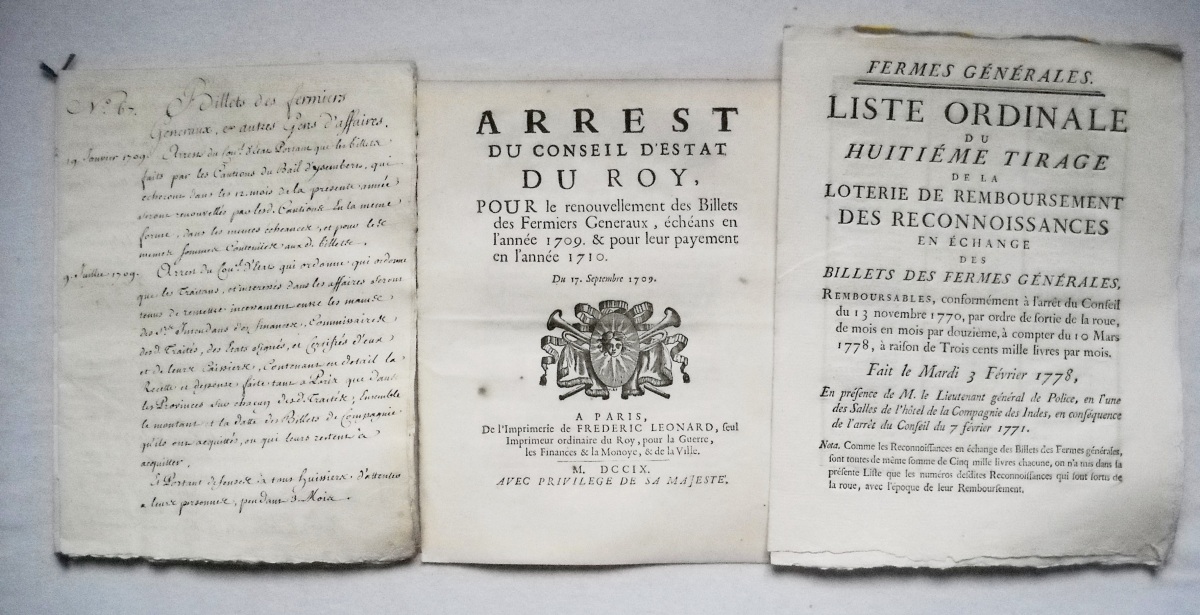 N.º 67. Billets des fermiers
Generaux, et autres Gens d'affaires.
19. Janvier 1709. Arrest du Con.el d'Etat Portant que les billets
faits par les Cautions du Bail d'Ysembert, qui
écherront dans les 12. mois de la presente année
seront renouvellés par lesd. Cautions En la même
forme, dans les mêmes écheances, et pour les
mêmes sommes Contenües auxd. billets.
9. Juillet 1709. Arrest du Con.el d'Etat qui ordonne qui ordonne
que les Traitans, et interessés dans les affaires seront
tenus de remettre incessament entre les mains
des S.rs Intendans des finances, Commissaires
desd. Traités, des Etats signés, et Certifiés d'eux
et de leurs Caissiers, Contenant en detail la
Recette et depense, faite tant a Paris que dans
les Provinces sur chacun desd. Traités; Ensemble
le montant et la datte des Billets de Compagnie
qu'ils ont acquittés, ou qui leurs restent à
acquitter,
Et Portant defenses à tous huissiers d'attenter
a leurs personnes, pendant 3. Mois.
ARREST
DU CONSEIL D'ESTAT
DU ROY,
POUR le renouvellement des Billets
des Fermiers Generaux, échéans en
l'année 1709. & pour leur payement
en l'année 1710.
Du 17. Septembre 1709.
A PARIS,
De l'Imprimerie de FREDERIC LEONARD, seul
Imprimeur ordinaire du Roy, pour la Guerre,
les Finances & la Monoye, & de la Ville.
M. DCCIX.
AVEC PRIVILEGE DE SA MAJESTE'.
FERMES GÉNÉRALES.
LISTE ORDINALE
DU
HUITIÉME TIRAGE
DE LA
LOTERIE DE REMBOURSEMENT
DES RECONNOISSANCES
EN ÉCHANGE
DES
BILLETS DES FERMES GÉNÉRALES,
REMBOURSABLES, conformément à l'arrêt du Conseil
du 13 novembre 1770, par ordre de sortie de la roue,
de mois en mois par douzième, à compter du 10 Mars
1778, à raison de Trois cents mille livres par mois.
Fait le Mardi 3 Février 1778,
En présence de M. le Lieutenant général de Police, en l'une
des Salles de l'hôtel de la Compagnie des Indes, en conséquence
de l'arrêt du Conseil du 7 février 1771.
Nota. Comme les Reconnoissances en échange des Billets des Fermes générales,
sont toutes de même somme de Cinq mille livres chacune, on n'a mis dans la
présente Liste que les numéros desdites Reconnoissances qui sont sortis de
la roue, avec l'époque de leur Remboursement.